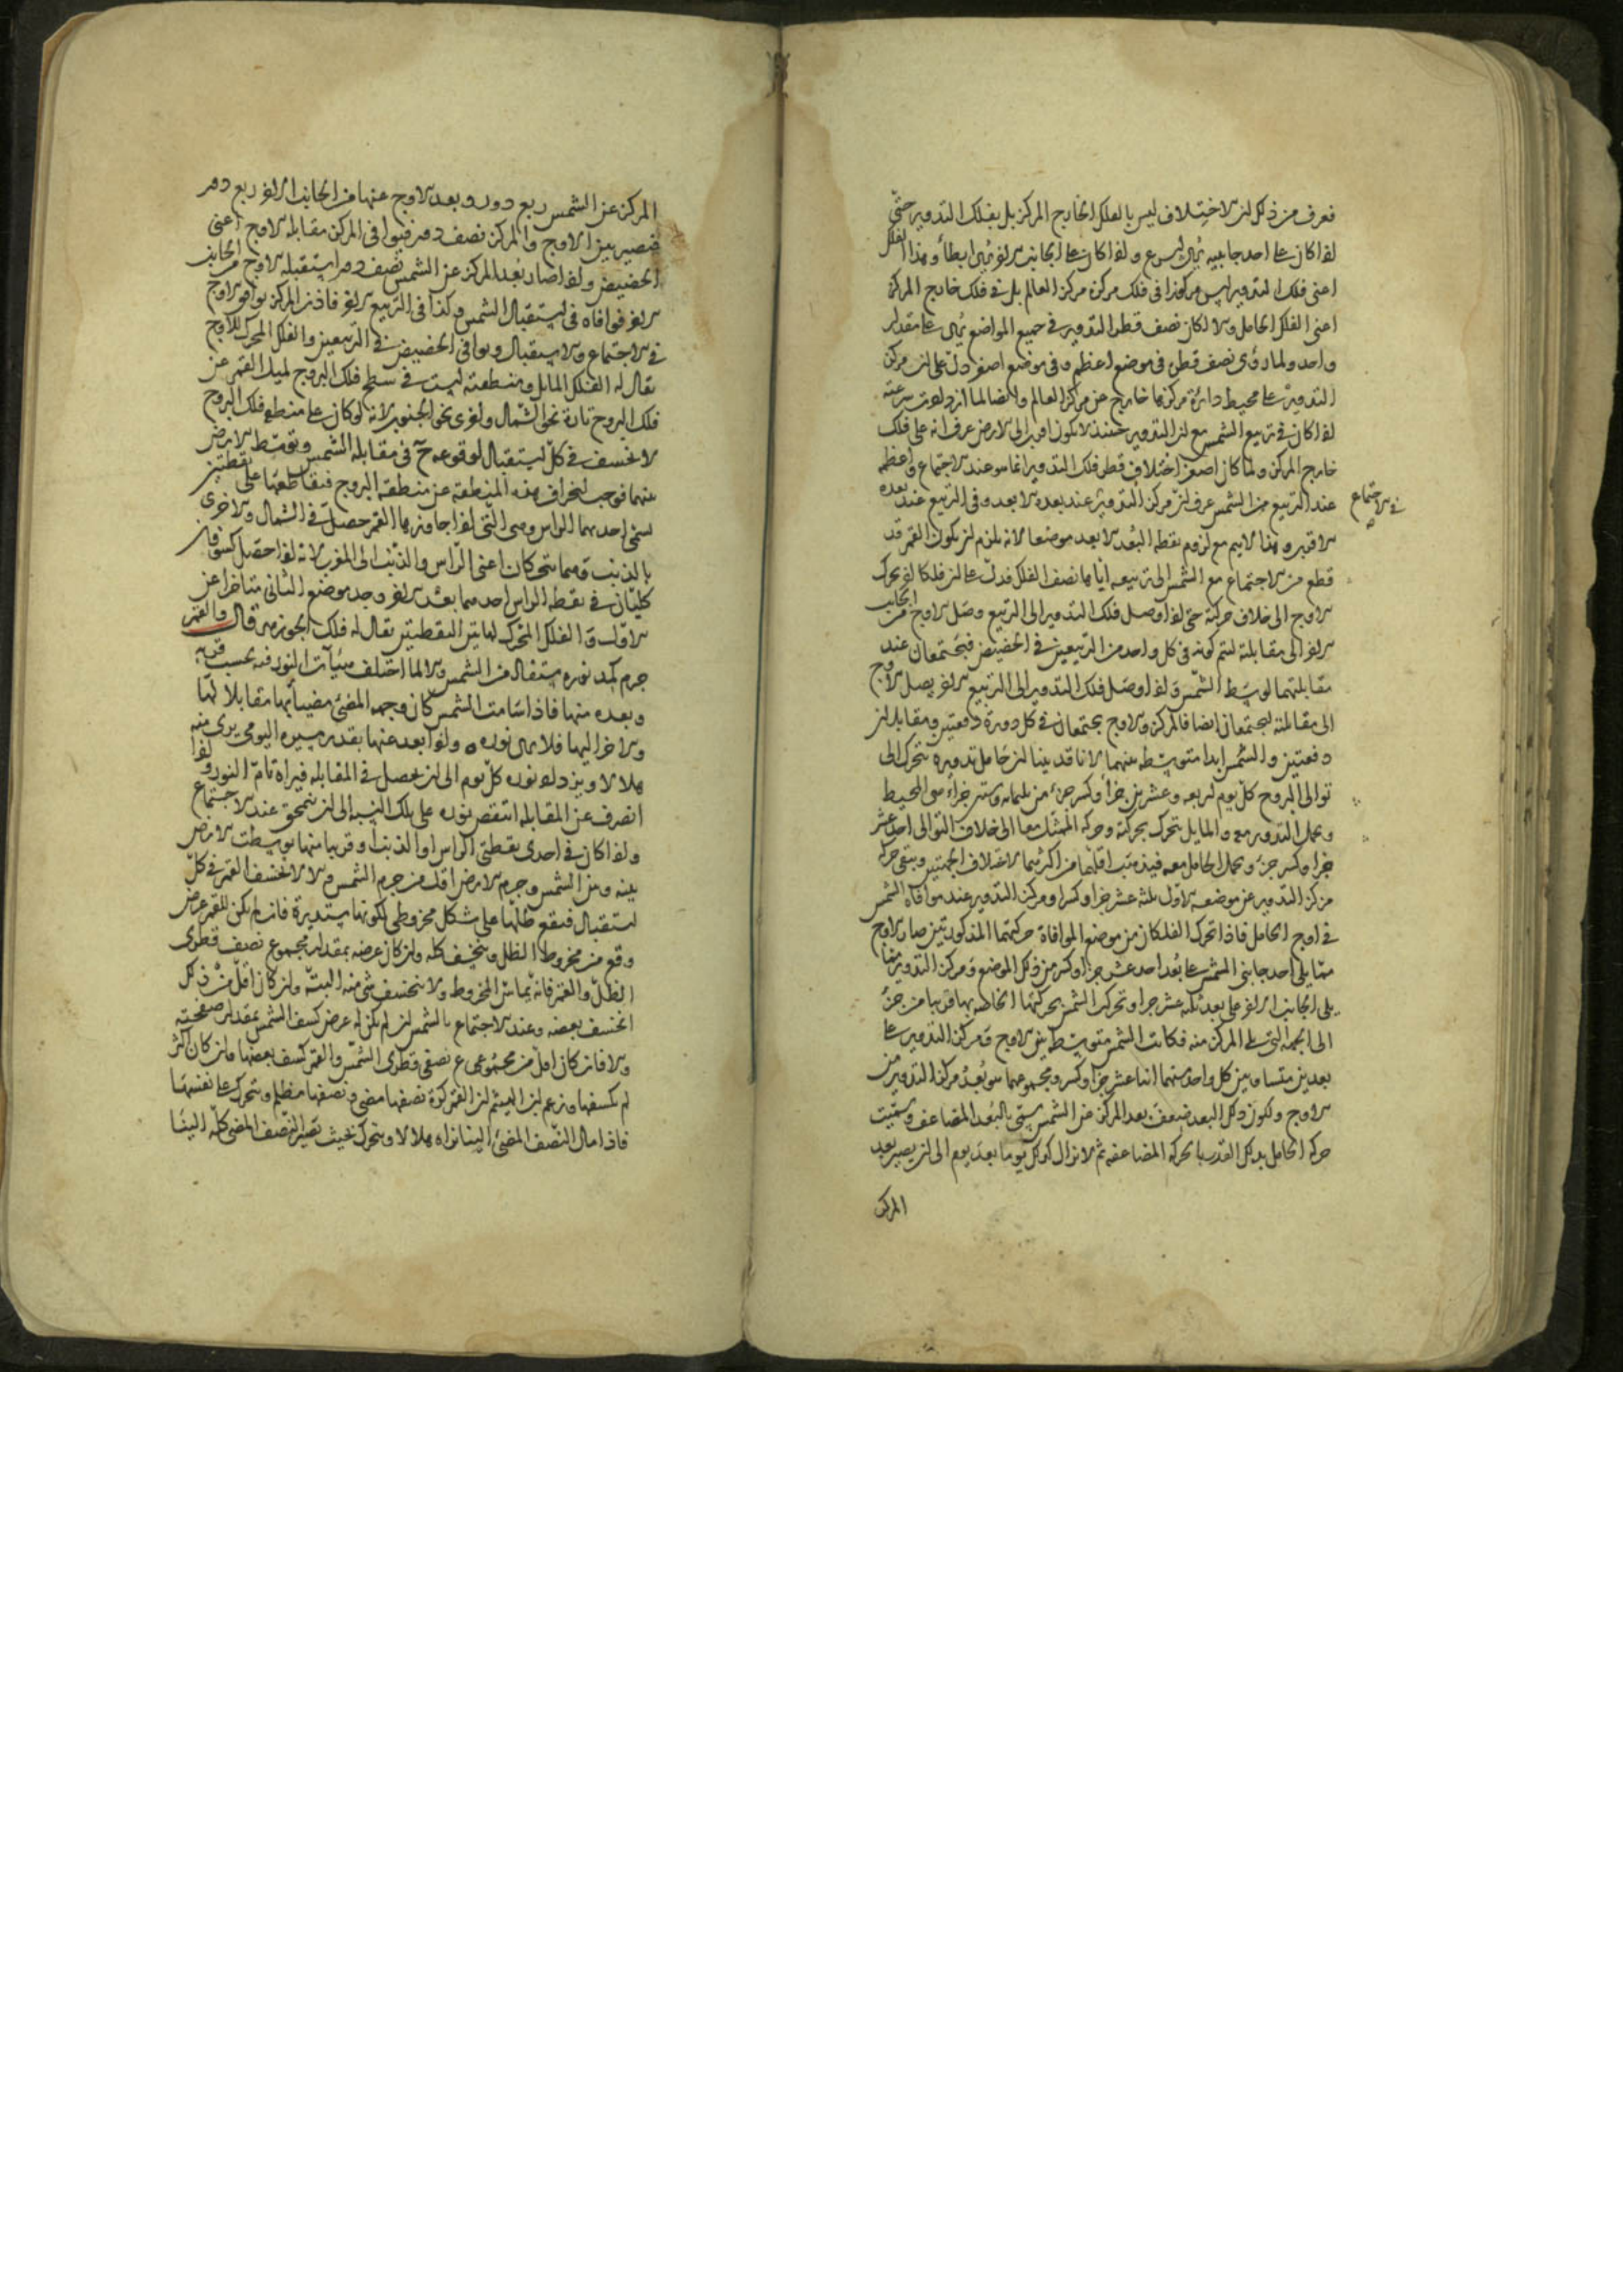 فعرف من ذلك ان الاختلاف ليس بالفلك الخارج المركز بل بفلك التدوير حتى
اذا كان على احد جانبيه يُرى اسرع واذا كان على الجانب الاخر يُرى ابطأ وهذا الفلك
اعنى فلك التدوير ليس مركوزا فى فلك مركزه مركز العالم بل فى فلك خارج المركز
اعنى الفلك الحامل والا لكان نصف قطر التدوير فى جميع المواضع يُرى على مقدار
واحد ولما رؤى نصف قطره فى موضع اعظم وفى موضع اصغر دلّ على ان مركز
التدوير على محيط دائرة مركزها خارج عن مركز العالم وايضا لما ازدادت سرعته
اذا كان فى تربيع الشمس مع ان التدوير حينئذ لا يكون اقرب الى الارض عرف انه على فلك
خارج المركز ولما كان اصغر اختلاف قطر فلك التدوير انما هو عند الاجتماع واعظمه
عند التربيع من الشمس عرف ان مركز التدوير عند بعده الابعد وفى التربيع عند بعده
فى الاجتماع
الاقرب وهذا لا يتم مع لزوم نقطة البُعد الابعد موضعا لانه يلزم ان يكون القمر قد
قطع من الاجتماع مع الشمس الى تربيعه اياها نصف الفلك فدلّ على ان فلكا اخر يحرك
الاوج الى خلاف حركته حتى اذا وصل فلك التدوير الى التربيع وصل الاوج من الجانب
الاخر الى مقابلته ليتم كونه فى كل واحد من التربيعين فى الحضيض فيجتمعان عند
مقابلتهما لوسط الشمس واذا وصل فلك التدوير الى التربيع الاخر يصل الاوج
الى مقابلته ليجتمعان ايضا فالمركز والاوج يجتمعان فى كل دورة دفعتين ويتقابلان
دفعتين والشمس ابدا متوسطة بينهما لانا قد بينا ان حامل تدويره يتحرك الى
توالى البروج كل يوم اربعة وعشرين جزأ وكسر جزء من ثلثمائة وستين جزأ هى المحيط
ويحمل التدوير معه والمايل يتحرك بحركته وحركة الممثل معا الى خلاف التوالى احد عشر
جزا وكسر جزء ويحمل الحامل معه فيذهب اقلهما من اكثرهما لاختلاف الجهتين ويبقى حركة
مركز التدوير عن موضعه الاول ثلثة عشر جزا وكسرا ومركز التدوير عند موافاة الشمس
فى اوج الحامل فاذا تحرك الفلكان من موضع الموافاة حركتهما المذكورتين صار الاوج
مما يلى احد جانبى الشمس على بُعد احد عشر جزا وكسر من ذلك الموضع ومركز التدوير مما
يلى الجانب الاخر على بعد ثلثة عشر جزا وتحركت الشمس بحركتها الخاصة بها قريبا من جزء
الى الجهة التى يلى المركز منه فكانت الشمس متوسطة بين الاوج ومركز التدوير على
بعدين متساويين كل واحد منهما اثنا عشر جزا وكسر ومجموعهما هو بُعد مركز التدوير من
الاوج ولكون ذلك البعد ضعف بعد المركز من الشمس يسمى بالبُعد المضاعف وسميت
حركة الحامل بذلك القدر بالحركة المضاعفة ثم لا يزال كذلك يوما بعد يوم الى ان يصير بعد
المركز
المركز عن الشمس ربع دور وبعد الاوج عنها من الجانب الاخر ربع دور
فيصير بين الاوج والمركز نصف دور فيوافى المركز مقابلة الاوج اعنى
الحضيض واذا صار بُعد المركز عن الشمس نصف دور استقبله الاوج من الجانب
الاخر فوافاه فى استقبال الشمس وكذا فى التربيع الاخر فاذن المركز يوافى الاوج
فى الاجتماع والاستقبال ويوافى الحضيض فى التربيعين والفلك المحرك للاوج
يقال له الفلك المايل ومنطقته ليست فى سطح فلك البروج لميل القمر عن
فلك البروج تارة نحو الشمال واخرى نحو الجنوب لانه لو كان على منطقة فلك البروج
لانخسف فى كل استقبال لوقوعه ح فى مقابلة الشمس وتوسط الارض
بينهما فوجب انحراف هذه المنطقة عن منطقة البروج فتقاطعها على نقطتين
تسمى احديهما الراس وهى التى اذا جاوزها القمر حصل فى الشمال والاخرى
بالذنب وهما تتحركان اعنى الراس والذنب الى المغرب لانه اذا حصل كسوفان
كليّان فى نقطة الراس احدهما بعد الاخر وجد موضع الثانى متاخرا عن
الاول والفلك المحرك لهاتين النقطتين يقال له فلك الجوزهر قال والقمر
جرم كمد نوره مستفاد من الشمس والا لما اختلف هيئآت النور فيه بحسب قربه
وبعده منها فاذا سامت الشمس كان وجهه المضئ مضيئا بها مقابلا لها
والاخر الينا فلا يرى نوره واذا بعد عنها بقدر مسيره اليومى يرى منه
هلالا ويزداد نوره كل يوم الى ان يحصل فى المقابلة فيراه تام النور واذا
انصرف عن المقابلة انتقص نوره على تلك النسبة الى ان ينمحق عند الاجتماع
واذا كان فى احدى نقطتى الراس او الذنب او قريبا منها توسطت الارض
بينه وبين الشمس وجرم الارض اقل من جرم الشمس والا لانخسف القمر فى كل
استقبال فيقع ظلها على شكل مخروطى لكونها مستديرة فان لم يكن للقمر عرض
وقع من مخروط الظل وينخسف كله وان كان عرضه بمقدار مجموع نصف قطرى
الظل والقمر فانه يماس المخروط ولا ينخسف شئ منه البتة وان كان اقل من ذلك
انخسف بعضه وعند الاجتماع بالشمس ان لم يكن له عرض كسف الشمس بمقدار صفحته
والا فان كان اقل من مجموع نصفى قطرى الشمس والقمر كسف بعضها وان كان اكثر
لم يكسفها وزعم ابن الهيثم ان القمر كرة نصفها مضئ ونصفها مظلم ويتحرك على نفسها
فاذا مال النصف المضئ الينا نراه هلالا ويتحرك بحيث يصير النصف المضئ كله الينا